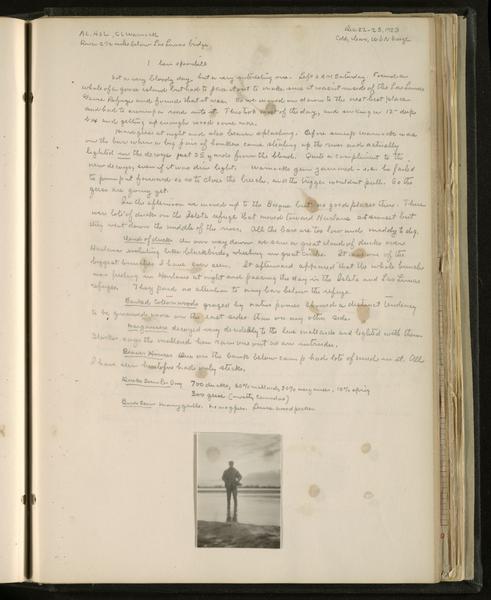 AL, HSL, CL Warnock Dec 22-23, 1923
River 2½ miles below Los Lunas bridge. Cold, clear, W to N
1
Not a very bloody day, but a very interesting one. Left 2 AM Saturday. Found a
whole of a goose island but had to pass it out to make sure it wasn't inside of the Los Lunas
Game Refuge and found that it was. So we moved on down to the next best place
and had to a road into it. This took most of the day, and sinking in 12" deep
box and getting up enough wood some more.
geese at night and also beaver splashing. Before sunup Warnock was
on the bar when a big pair of honkers came along up the river and actually
lighted in the decoys just 35 yards from the blind. Quite a compliment to the
new decoys, even if it was dim light. Warnocks gun jammed - or he failed
to pump it forward so as to close the breech, and the trigger wouldn't pull. So the
geese are going yet.
In the afternoon we moved up to the Bosque but no good places there. There
were lots of ducks on the Isleta refuge that moved toward Harlans at sunset but
they went down the middle of the river. All the bars are too low and muddy to dig.
Clouds of ducks On our way down we saw a great cloud of ducks over
Harlans circling like blackbirds, wheeling in great circles. It was one of the
biggest bunches I have ever seen. It afterward appeared that the whole bunch
was feeding in Harlans at night and passing the day in the Isleta and Los Lunas
refuges. They paid no attention to any bars below the refuge.
Barked Cottonwoods grazed by native ponies showed a distinct tendency
to be gnawed more on the east sides than on any other side.
Mergansers decoyed very decidedly to the live mallards and lighted with them.
says the mallard hen runs one out as an outsider.
Beaver Houses One on the bank below camp had lots of mud on it. All
I have seen heretofore had only sticks.
Ducks Seen Per Day 700 ducks, 60% mallards, 30% mergansers, 10% sprig
300 geese (mostly Canadas)
Birds Seen Many gulls. No magpies. Lewis woodpecker